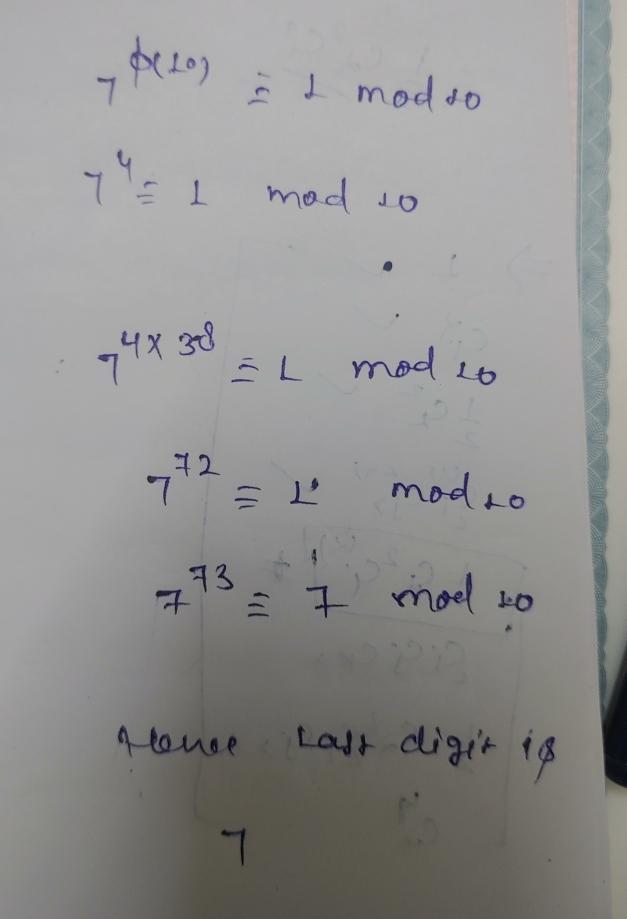 7^ϕ(10) ≡ 1 mod 10
7^4 ≡ 1 mod 10
7^4×38 ≡ 1 mod 10
7^72 ≡ 1 mod 10
7^73 ≡ 7 mod 10
Hence Last digit is
7